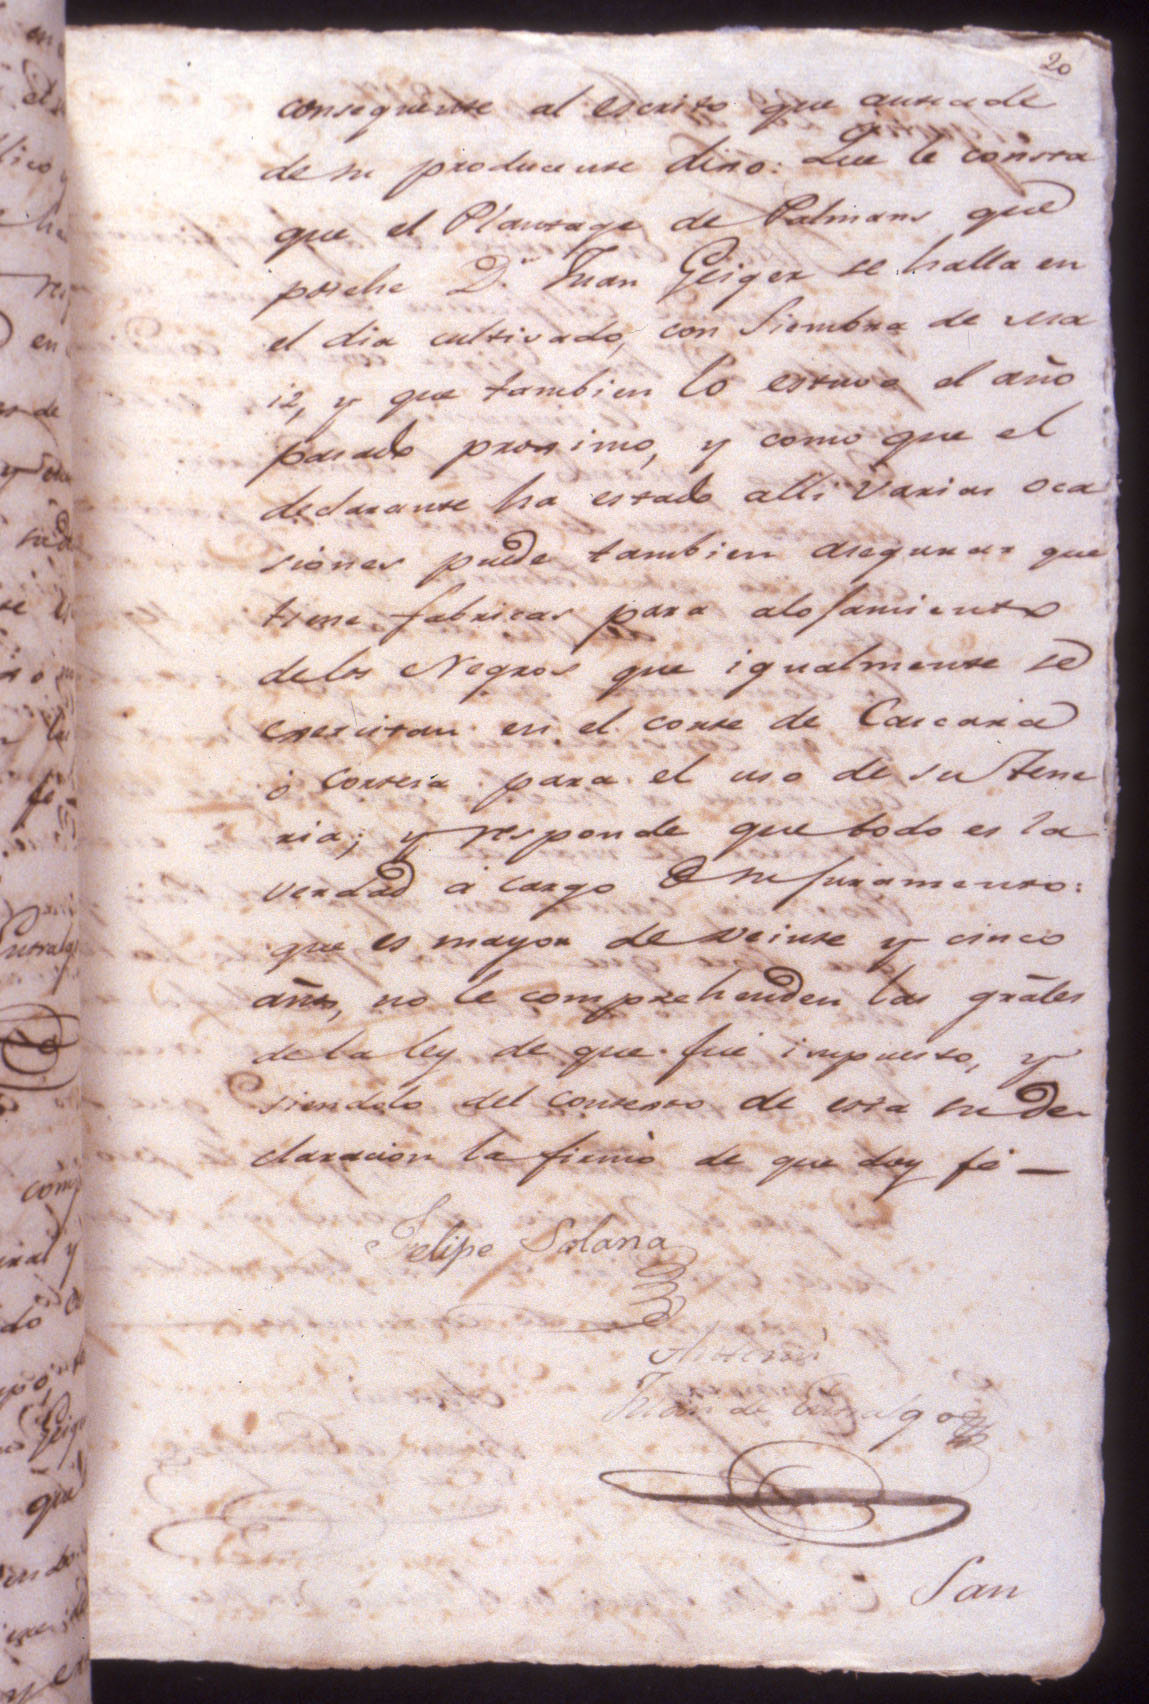 20
consequente al escrito que antecede
de su producente dixo: Que le consta
que el Plantage de Palmans que
poséhe Dn. Juan Geiger se halla en
el dia cultivado, con Siembra de ma
iz, y que tambien lo estuvo el año
pasado proximo, y como que el
declarante ha estado alli varias oca
siones puede tambien asegurar que
tiene fabricas para alojamiento
de los Negros que igualmente se
exercitan en el corte de Cascaria
ó Corteza para el uso de su Tene
ria; y responde que todo es la
verdad á cargo de su juramento:
que es mayor de veinte y cinco
años, no le comprehenden las grãles
de la ley de que fué impuesto, y
siendolo del contexto de esta su de
claracion la firmò de que doy fé —
Felipe Solana
Antemi
Juan de Entralgo
San